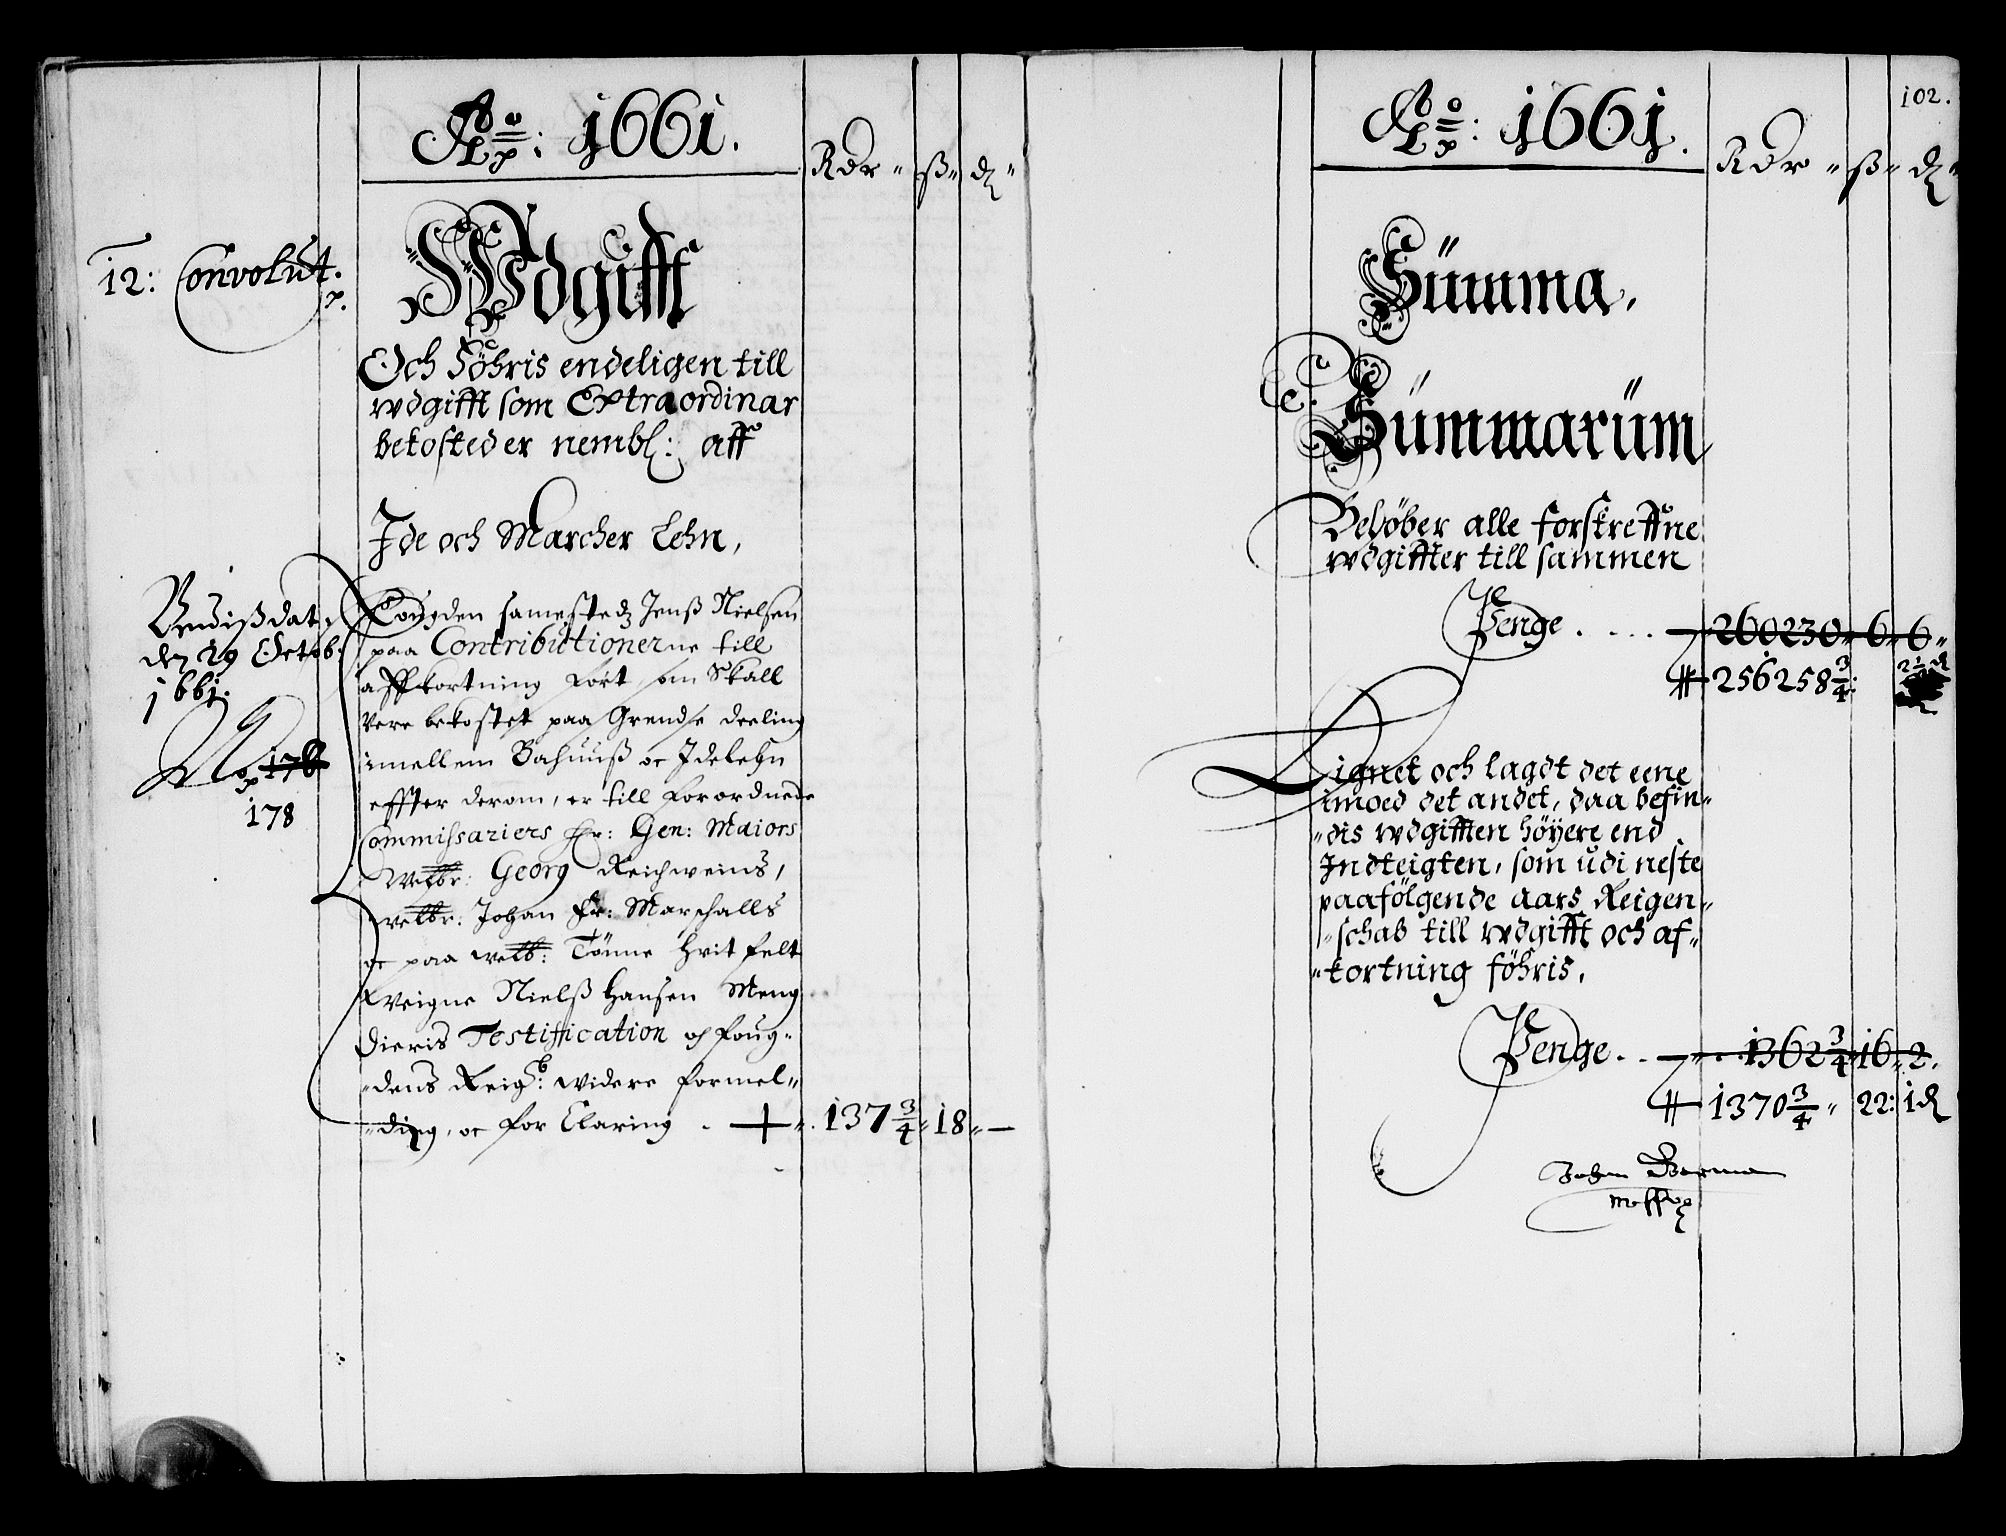 Ao: 1661.
Rdr ß d
12: Convolut.
Wdgifft
Och föhris endeligen till
wdgifft som Extraordinar
bekosteder nembl: aff
Ide och Marcher Lehn,
dat
den 29 Octob:
1661.
No 176
178
Fougden samested Jenß Nielsen
paa Contributionerne till
affkortning ført som Skall
vere bekostet paa Grendse deeling
imellem Bahuuß oc Idelehn
effter derom, er till forordnede
Commissariers Hr: Gen: Maiors
Welbr: Georg Reichweins,
welbr: Johan Fr: Marschalls
oc paa welb: Tønne Hvitfelt
Weigne Nielß Hansen Meng
dieris Testification och foug-
dens Reigsb: widere formel-
ding, oc for Claring . 137 3/4 18 —
102.
Ao: 1661.
Rdr ß d
Summa,
Summarum
Beløber alle forskreffne
wdgiffter till sammen
Penge .... 260230 6 6
256258 3/4: 2 1/2 d
Lignet och lagdt det eene
imoed det andet, daa befin-
dis wdgifften höyere end
Indteigten, som udi neste
paafölgende aars Reigen-
schab till wdgifft och af-
kortning föhris.
Penge .. 1362 3/4 16 2.
1370 3/4 22: 1 d
Johan